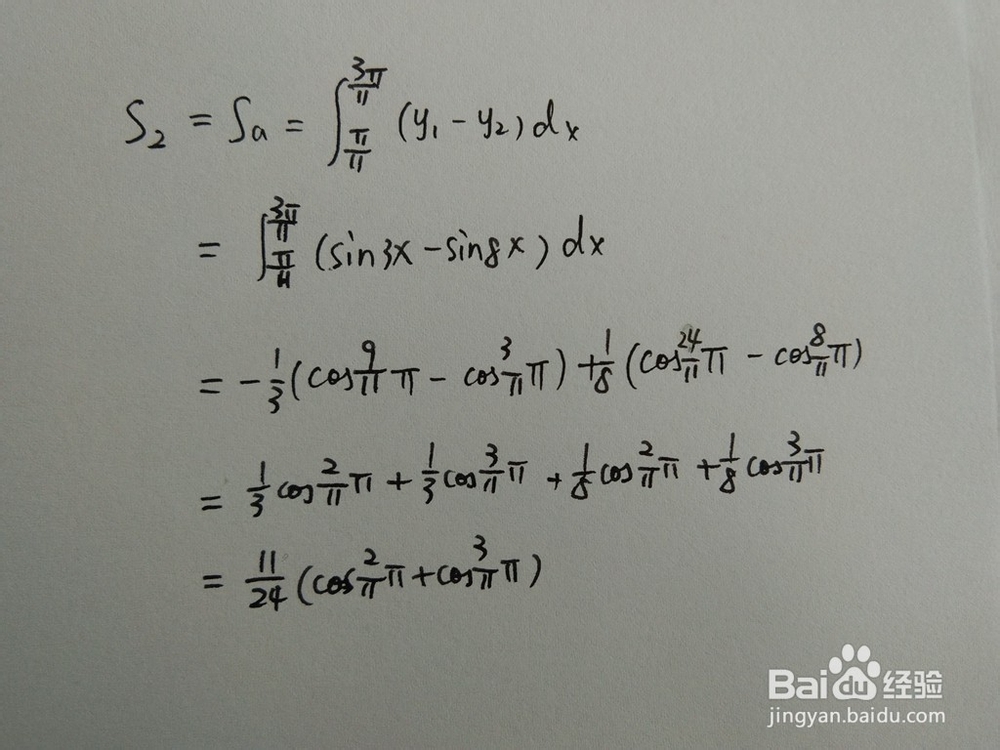 S₂ = Sₐ = ∫_{π/11}^{3π/11} (y₁ - y₂) dx
= ∫_{π/11}^{3π/11} (sin3x - sin8x) dx
= -1/3 (cos 9/11 π - cos 3/11 π) + 1/8 (cos 24/11 π - cos 8/11 π)
= 1/3 cos 2/11 π + 1/3 cos 3/11 π + 1/8 cos 2/11 π + 1/8 cos 3/11 π
= 11/24 (cos 2/11 π + cos 3/11 π)
Baidu经验
jingyan.baidu.com